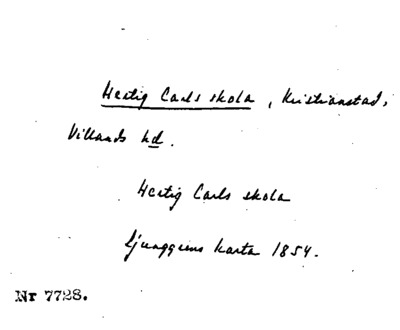 Hertig Carls skola, Kristianstad,
Villands hd.
Hertig Carls skola
Ljunggrens karta 1854.
Nr 7728.